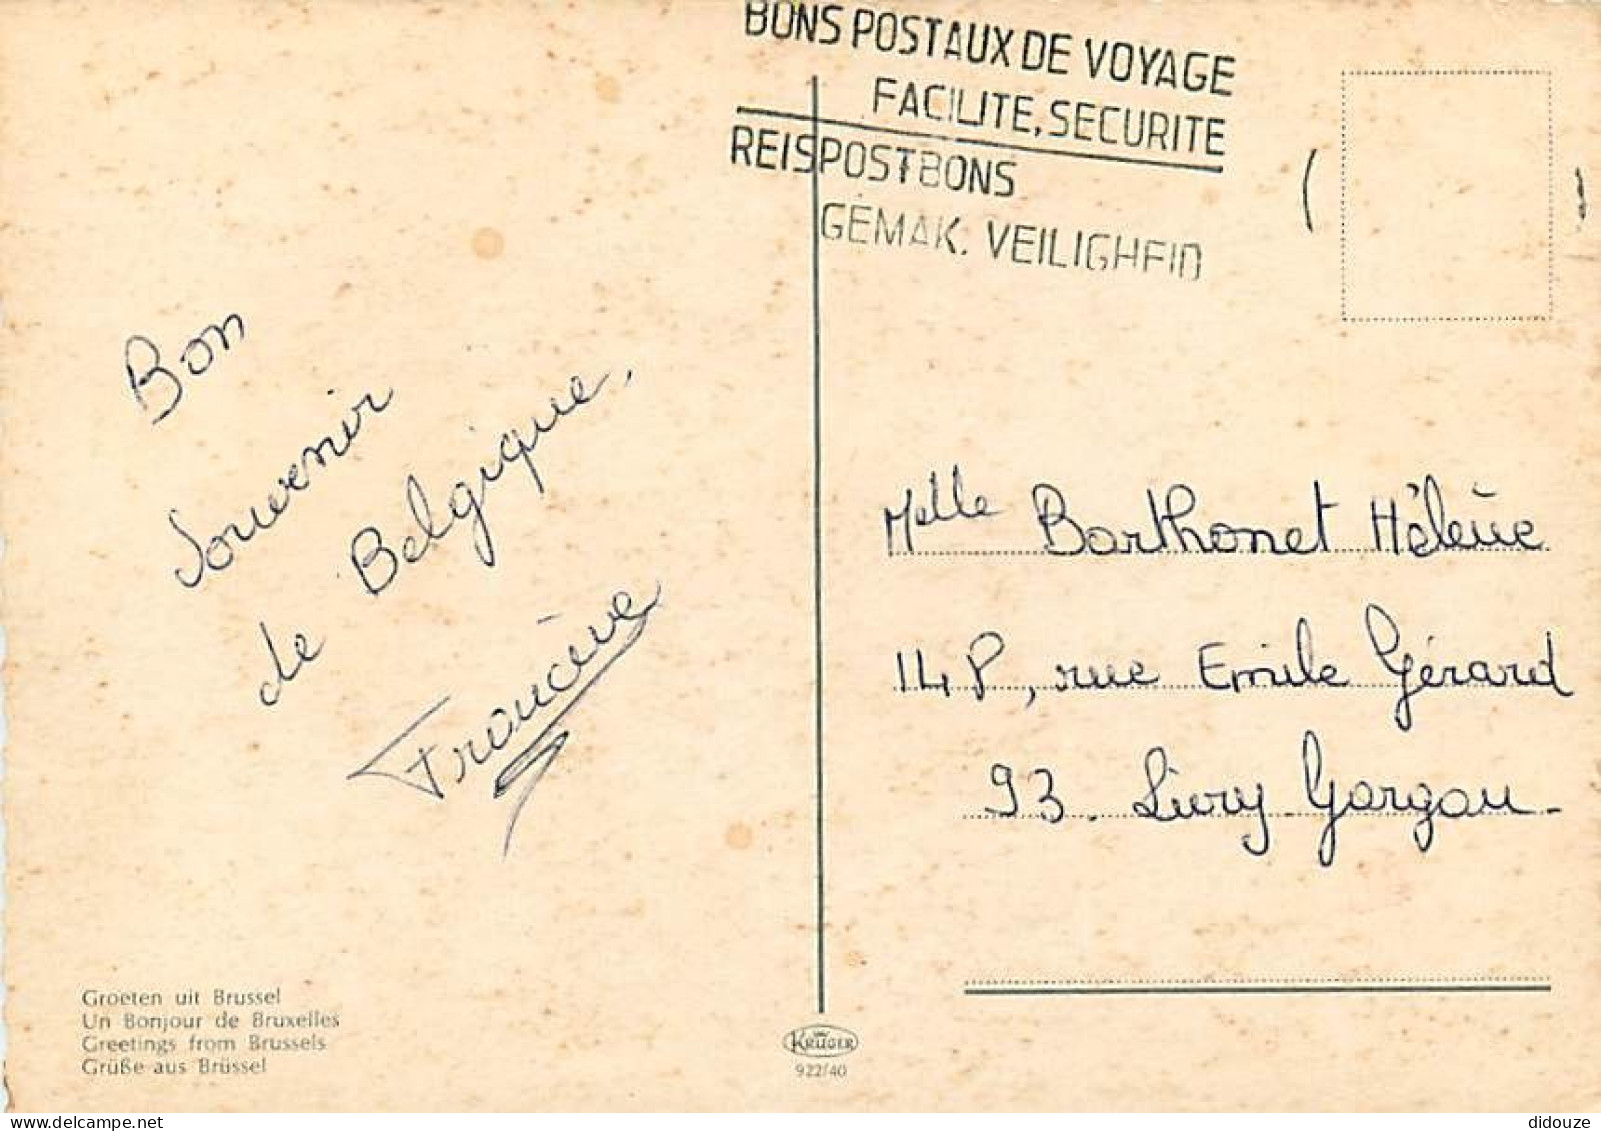 BONS POSTAUX DE VOYAGE
FACILITE, SECURITE
REISPOSTBONS
GEMAK. VEILIGHEID
Bon
Souvenir
de Belgique,
Francine
Melle Barthonet Hélène
14P, rue Emile Gérard
93. Livry Gargan.
Groeten uit Brussel
Un Bonjour de Bruxelles
Greetings from Brussels
Grüße aus Brüssel
KRÜGER
922/40
didouze